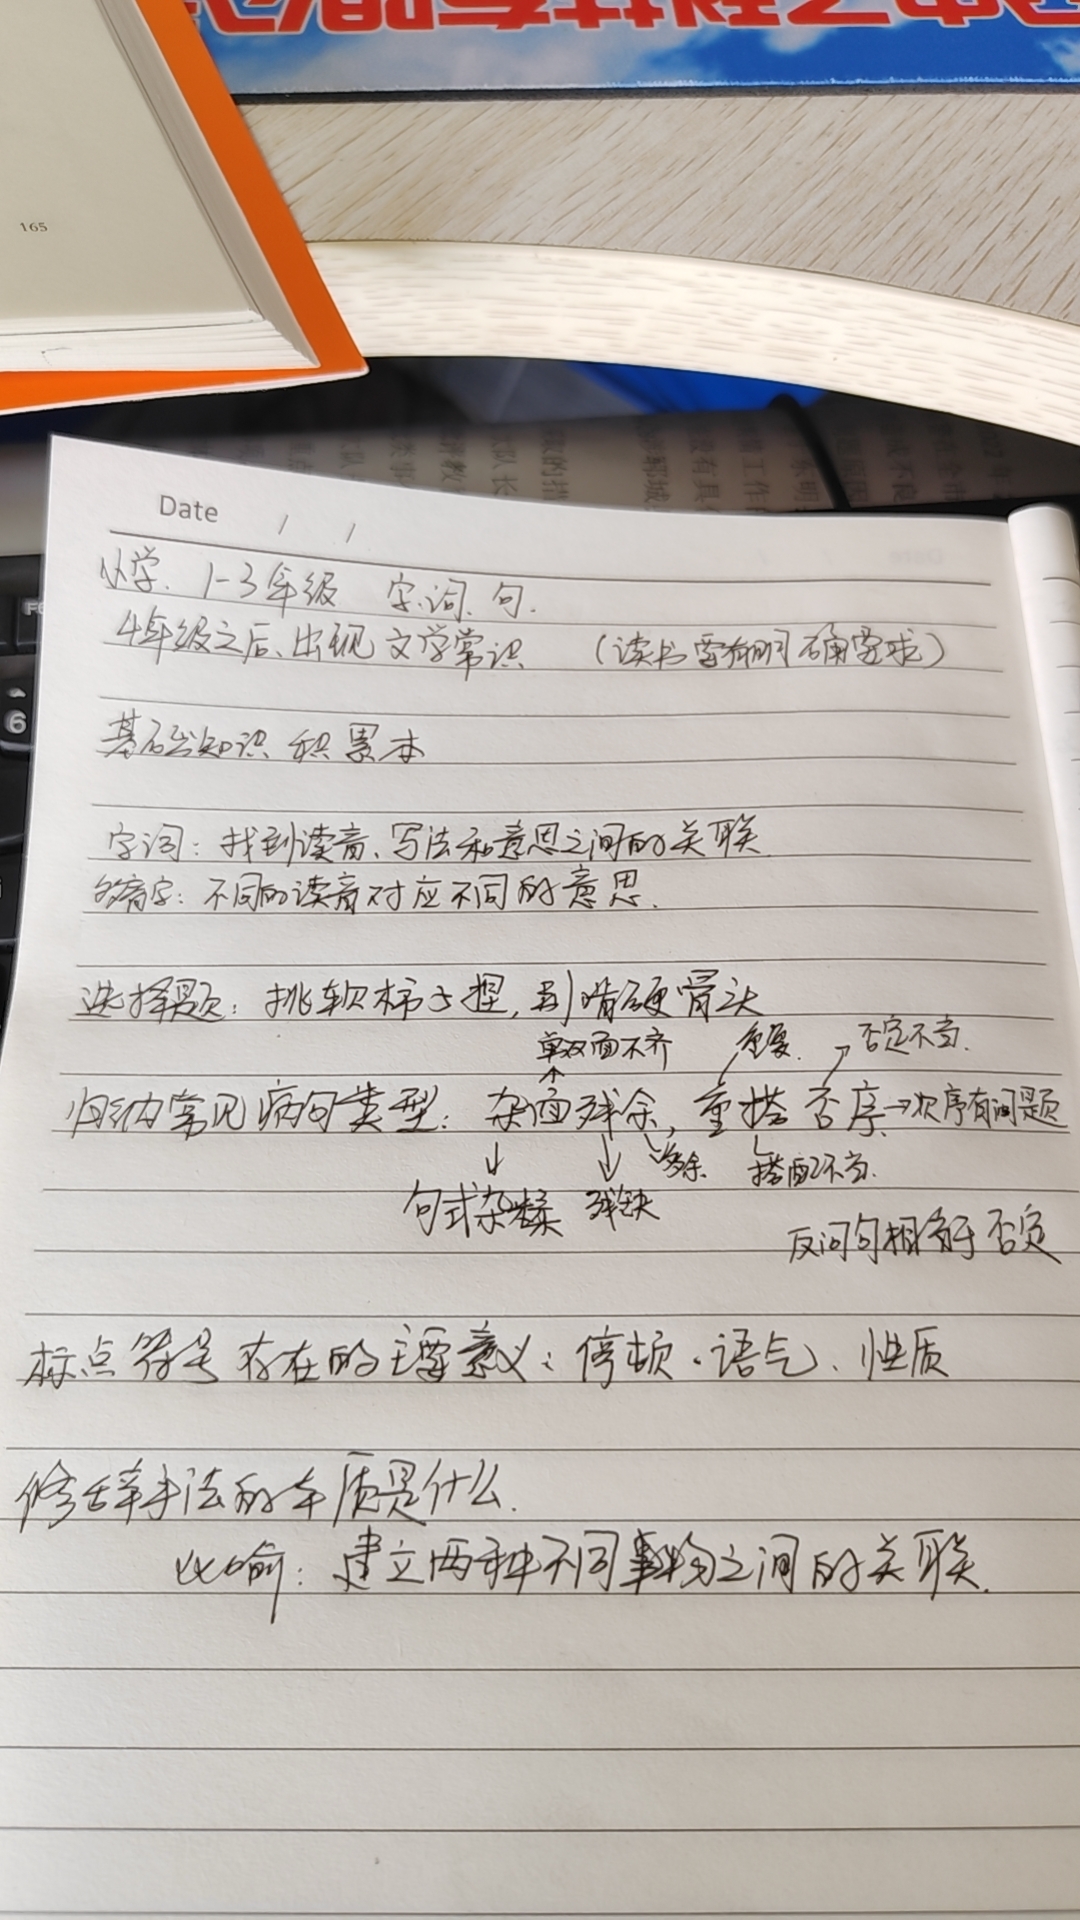 165
Date / /
小学. 1-3年级 字.词.句.
4年级之后、出现 文学常识 (读书需有明确要求)
基础知识 积累本
字词: 找到读音、写法和意思之间的关联.
多音字: 不同的读音对应不同的意思.
选择题: 挑软柿子捏, 别啃硬骨头
单双面不齐 重复. 否定不当.
归纳常见病句类型: 杂面残余, 重搭否序→次序有问题
多余. 搭配不当.
句式杂糅 残缺
反问句相当于否定
标点符号存在的主要意义: 停顿、语气、性质
修辞手法的本质是什么.
比喻: 建立两种不同事物之间的关联.